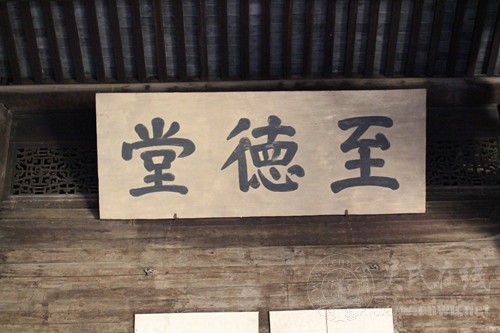 至德堂